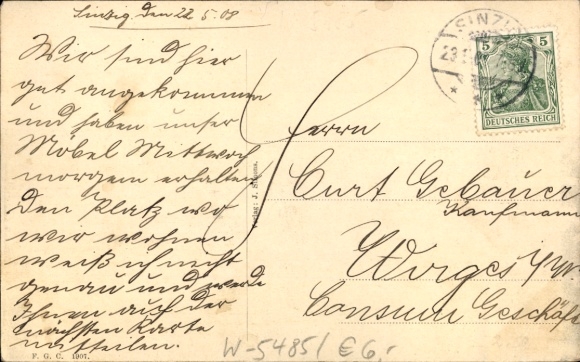 Sinzig, den 22.5.08
Wir sind hier
gut angekommen
und haben unser
Möbel Mittwoch
morgen erhalten
Den Platz wo
wir wohnen
weiß ich nicht
genau und werde
Ihnen auf der
nächsten Karte
mitteilen.
F. G. C. 1907.
Verlag: J.
SINZI
23.
5 5
DEUTSCHES REICH
Herrn
Curt Gebauer
Kaufmann
Wirges
Consum Geschäft
W-5485/ € 6,-